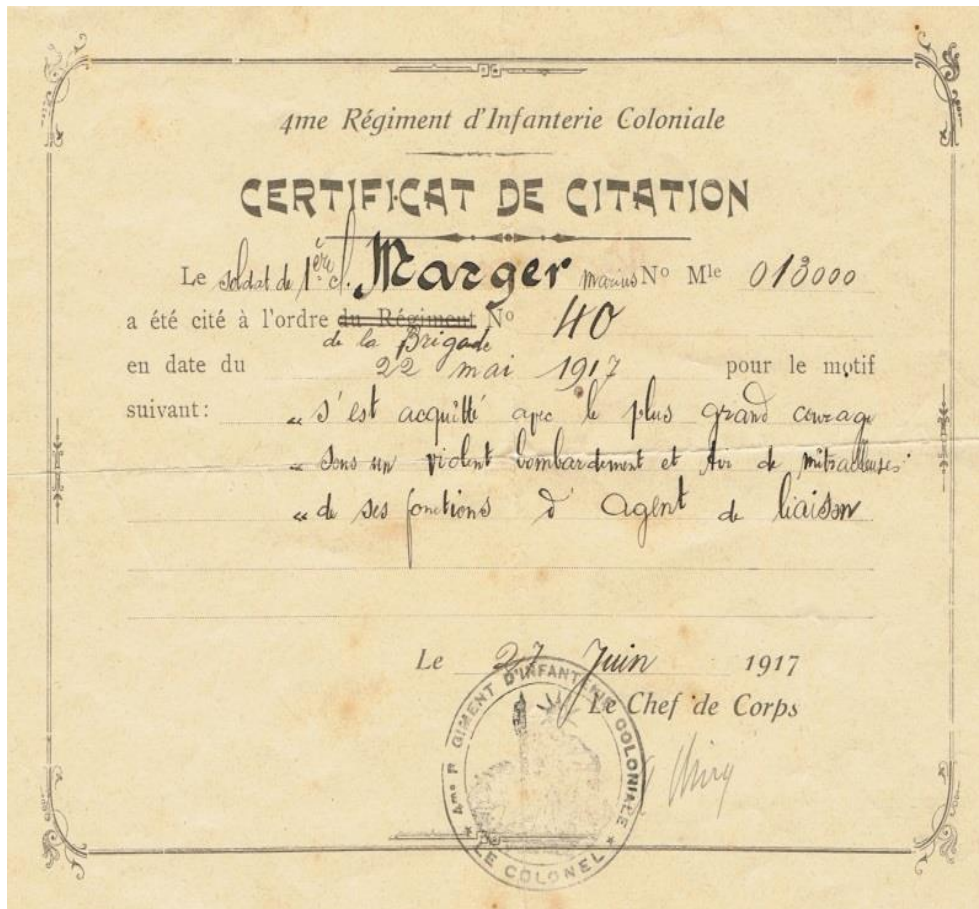 4me Régiment d'Infanterie Coloniale
CERTIFICAT DE CITATION
Le soldat de 1ère cl. Marger Marius No Mle 013000
a été cité à l'ordre du Régiment No 40
de la Brigade
en date du 22 mai 1917 pour le motif
suivant: « s'est acquitté avec le plus grand courage
« sous un violent bombardement et tir de mitrailleuses
« de ses fonctions d'agent de liaison
Le 27 Juin 1917
Le Chef de Corps
4me RÉGIMENT D'INFANTERIE COLONIALE
* LE COLONEL *